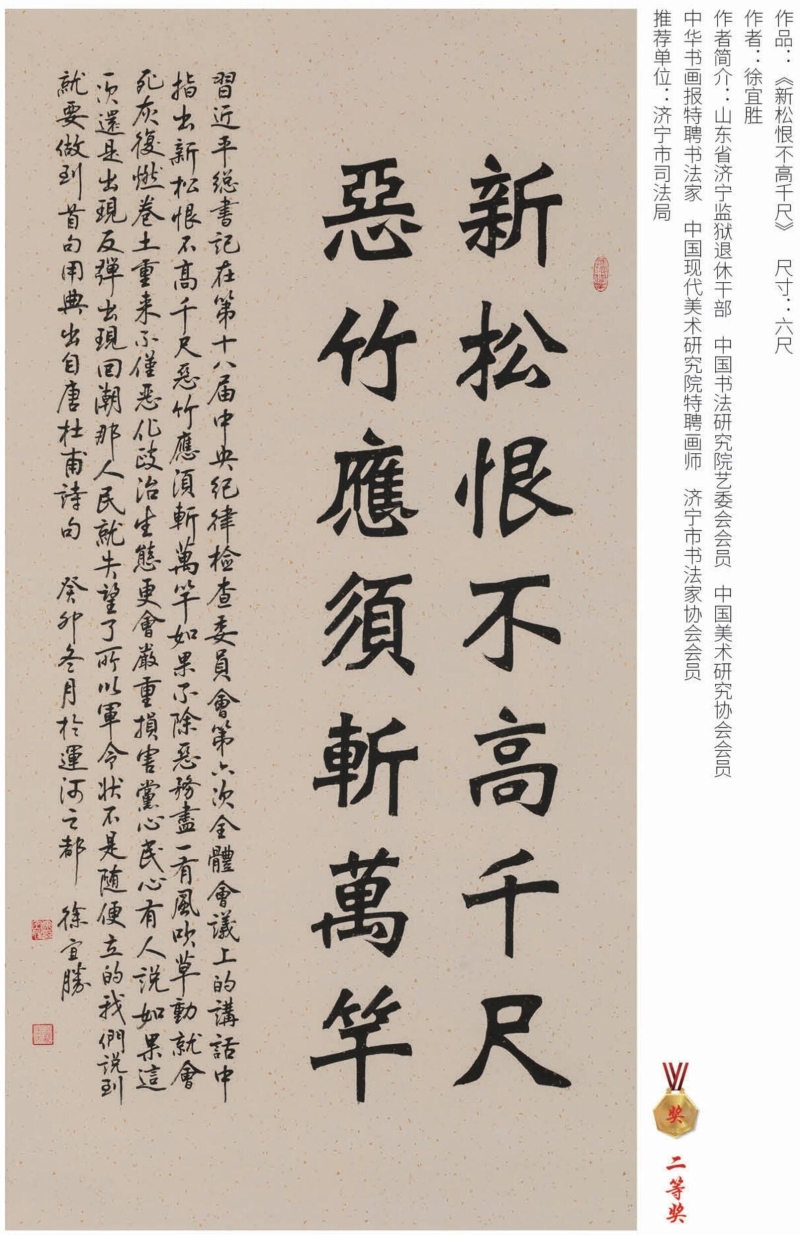 作品：《新松恨不高千尺》　尺寸：六尺
作者：徐宜胜
作者简介：山东省济宁监狱退休干部　中国书法研究院艺委会会员　中国美术研究协会会员
中华书画报特聘书法家　中国现代美术研究院特聘画师　济宁市书法家协会会员
推荐单位：济宁市司法局
新松恨不高千尺
惡竹應須斬萬竿
習近平總書記在第十八届中央纪律檢查委員會第六次全體會議上的講話中
指出新松恨不高千尺惡竹應須斬萬竿如果不除惡務盡一有風吹草動就會
死灰復燃卷土重来不僅惡化政治生態更會嚴重損害黨心民心有人説如果這
次還是出現反彈出現回潮那人民就失望了所以軍令状不是随便立的我們説到
就要做到首句用典出自唐杜甫詩句　癸卯冬月於運河之都　徐宜勝
奖
二等奖